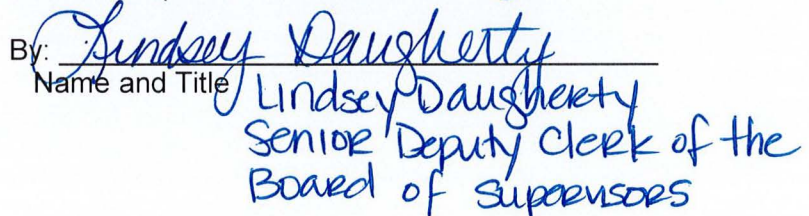 By: Lindsey Daugherty
Name and Title
Lindsey Daugherty
Senior Deputy Clerk of the
Board of Supervisors